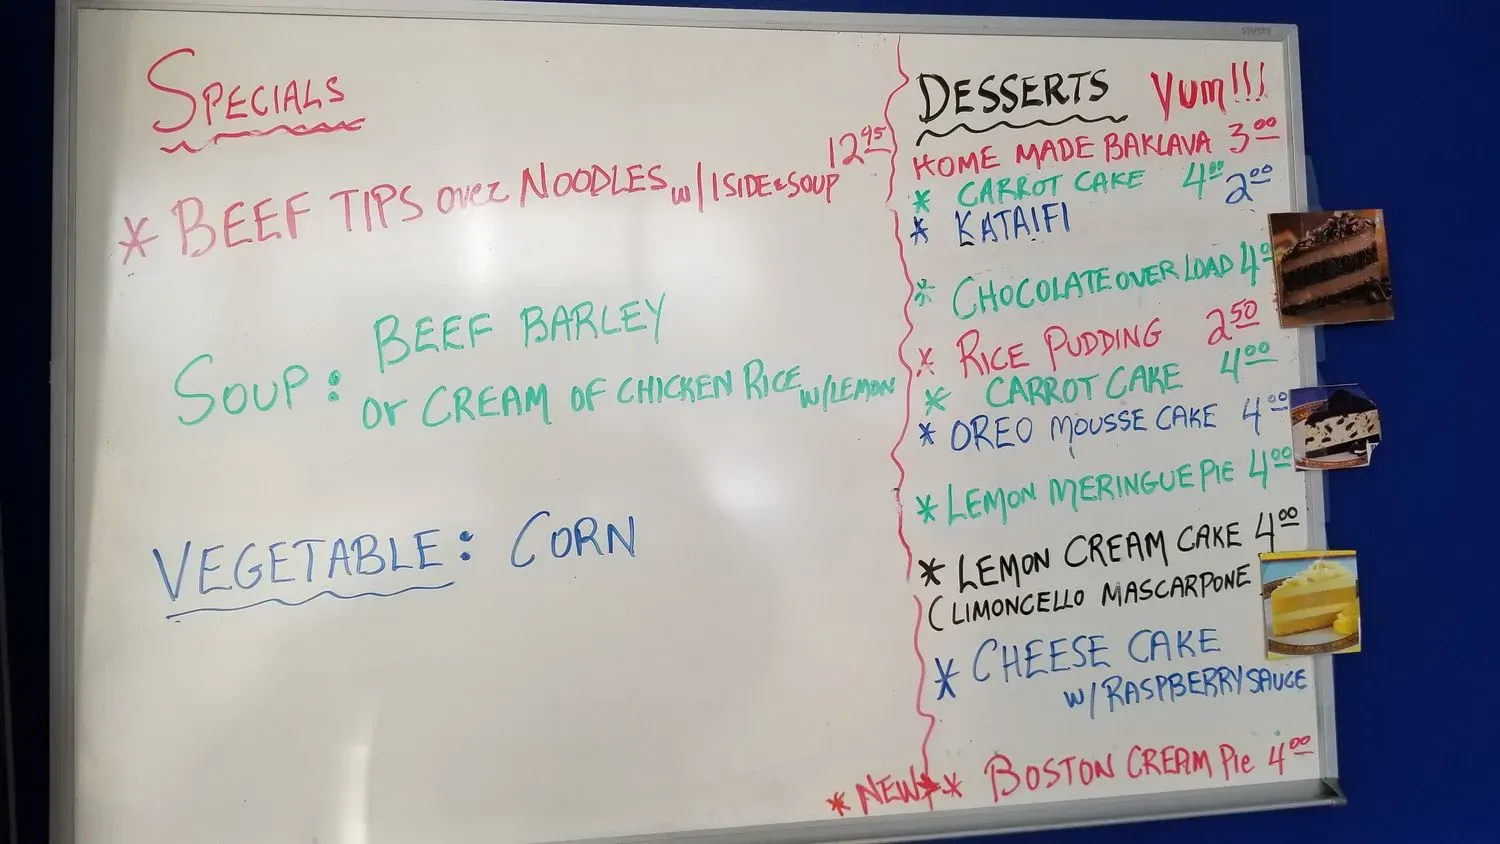 SPECIALS
* BEEF TIPS over NOODLES w/ 1 SIDE & SOUP 12.95
SOUP: BEEF BARLEY
or CREAM OF CHICKEN RICE w/LEMON
VEGETABLE: CORN
DESSERTS YUM!!!
HOME MADE BAKLAVA 3.00
* CARROT CAKE 4.00
* KATAIFI 2.00
* CHOCOLATE OVER LOAD 4.0
* RICE PUDDING 2.50
* CARROT CAKE 4.00
* OREO MOUSSE CAKE 4.00
* LEMON MERINGUE PIE 4.00
* LEMON CREAM CAKE 4.00
(LIMONCELLO MASCARPONE
* CHEESE CAKE
w/ RASPBERRY SAUCE
* NEW * * BOSTON CREAM PIE 4.00
STAPLES